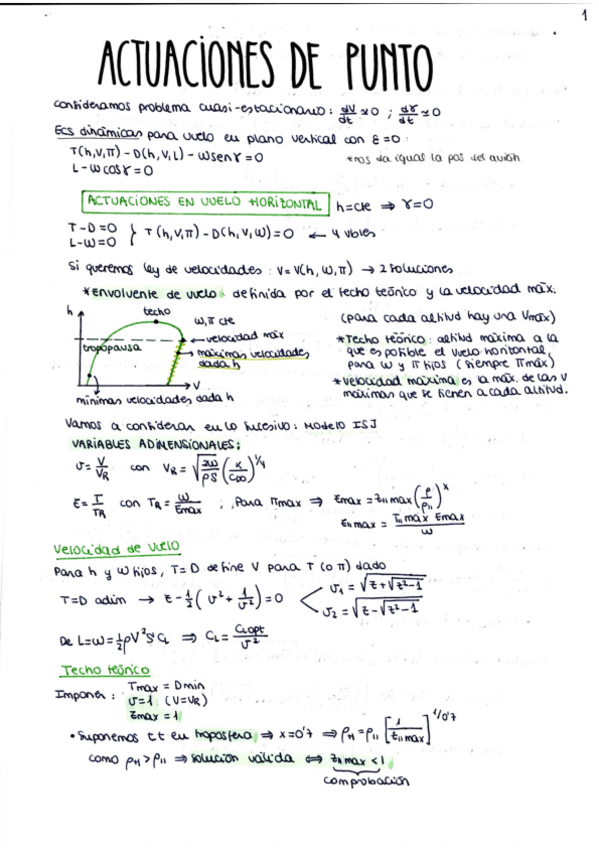 1
ACTUACIONES DE PUNTO
Consideramos problema cuasi-estacionario: dV/dt ≃ 0 ; dγ/dt ≃ 0
Ecs dinámicas para vuelo en plano vertical con ε=0:
T(h,V,π) - D(h,V,L) - W sen γ = 0
*nos da igual la pos del avión
L - W cos γ = 0
ACTUACIONES EN VUELO HORIZONTAL h=cte ⇒ γ=0
T-D=0
L-W=0 } T(h,V,π) - D(h,V,W) = 0 ← 4 vbles
Si queremos ley de velocidades: V = V(h,W,π) → 2 soluciones
*Envolvente de vuelo: definida por el techo teórico y la velocidad máx.
(para cada altitud hay una Vmáx)
h
techo
W,π cte
velocidad máx
tropopausa
máximas velocidades
dada h
V
mínimas velocidades dada h
*Techo teórico: altitud máxima a la
que es posible el vuelo horizontal,
para W y π fijos (siempre πmáx)
*Velocidad máxima es la máx. de las V
máximas que se tienen a cada altitud.
Vamos a considerar en lo sucesivo: Modelo ISJ
VARIABLES ADIMENSIONALES:
v = V/VR con VR = √(2W/ρS) (K/CD0)^1/4
z = T/TR con TR = W/Emax ; Para πmax ⇒ zmax = z11 max (ρ/ρ11)^x
z11 max = T11 max Emax / W
Velocidad de vuelo
Para h y W fijos, T=D define V para T (o π) dado
T=D adim → z - 1/2 (v² + 1/v²) = 0
v1 = √(z+√(z²-1))
v2 = √(z-√(z²-1))
De L=W=1/2 ρV²S CL ⇒ CL = CLopt/v²
Techo teórico
Imponer: Tmax = Dmin
v=1 (V=VR)
zmax = 1
• Suponemos t.t en troposfera ⇒ x=0'7 ⇒ ρtt = ρ11 [1/z11 max]^1/0'7
como ρtt > ρ11 ⇒ solución válida ⇔ z11 max < 1
comprobación